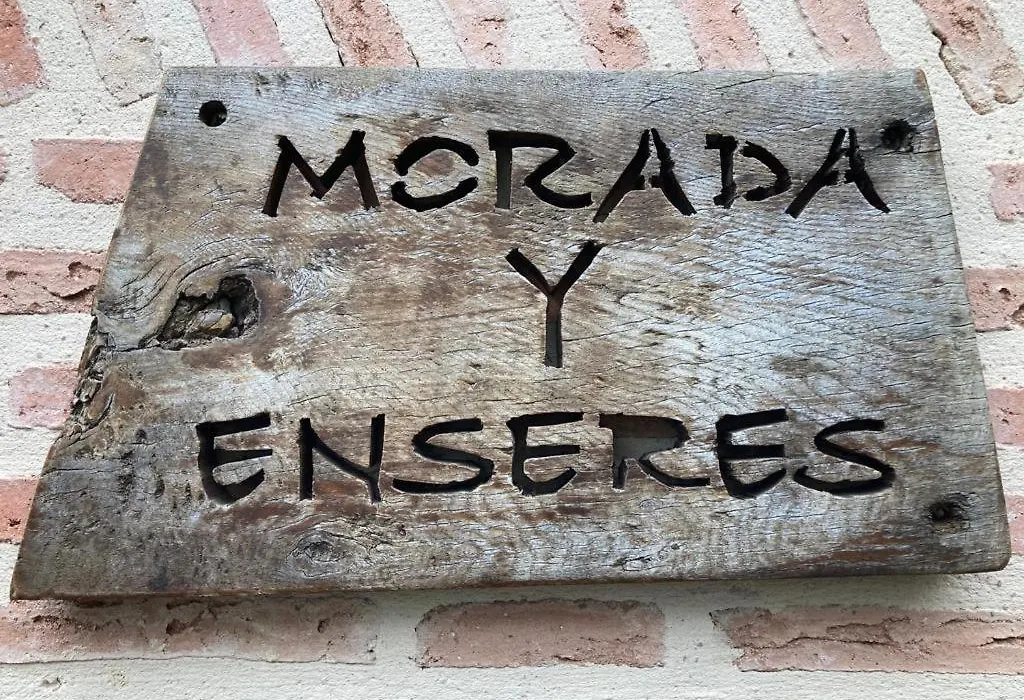 MORADA
Y
ENSERES